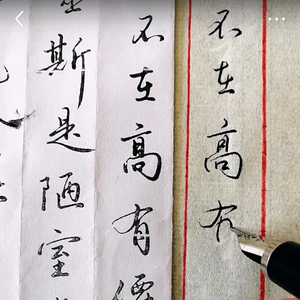 不在高有
不在高有仙
斯是陋室